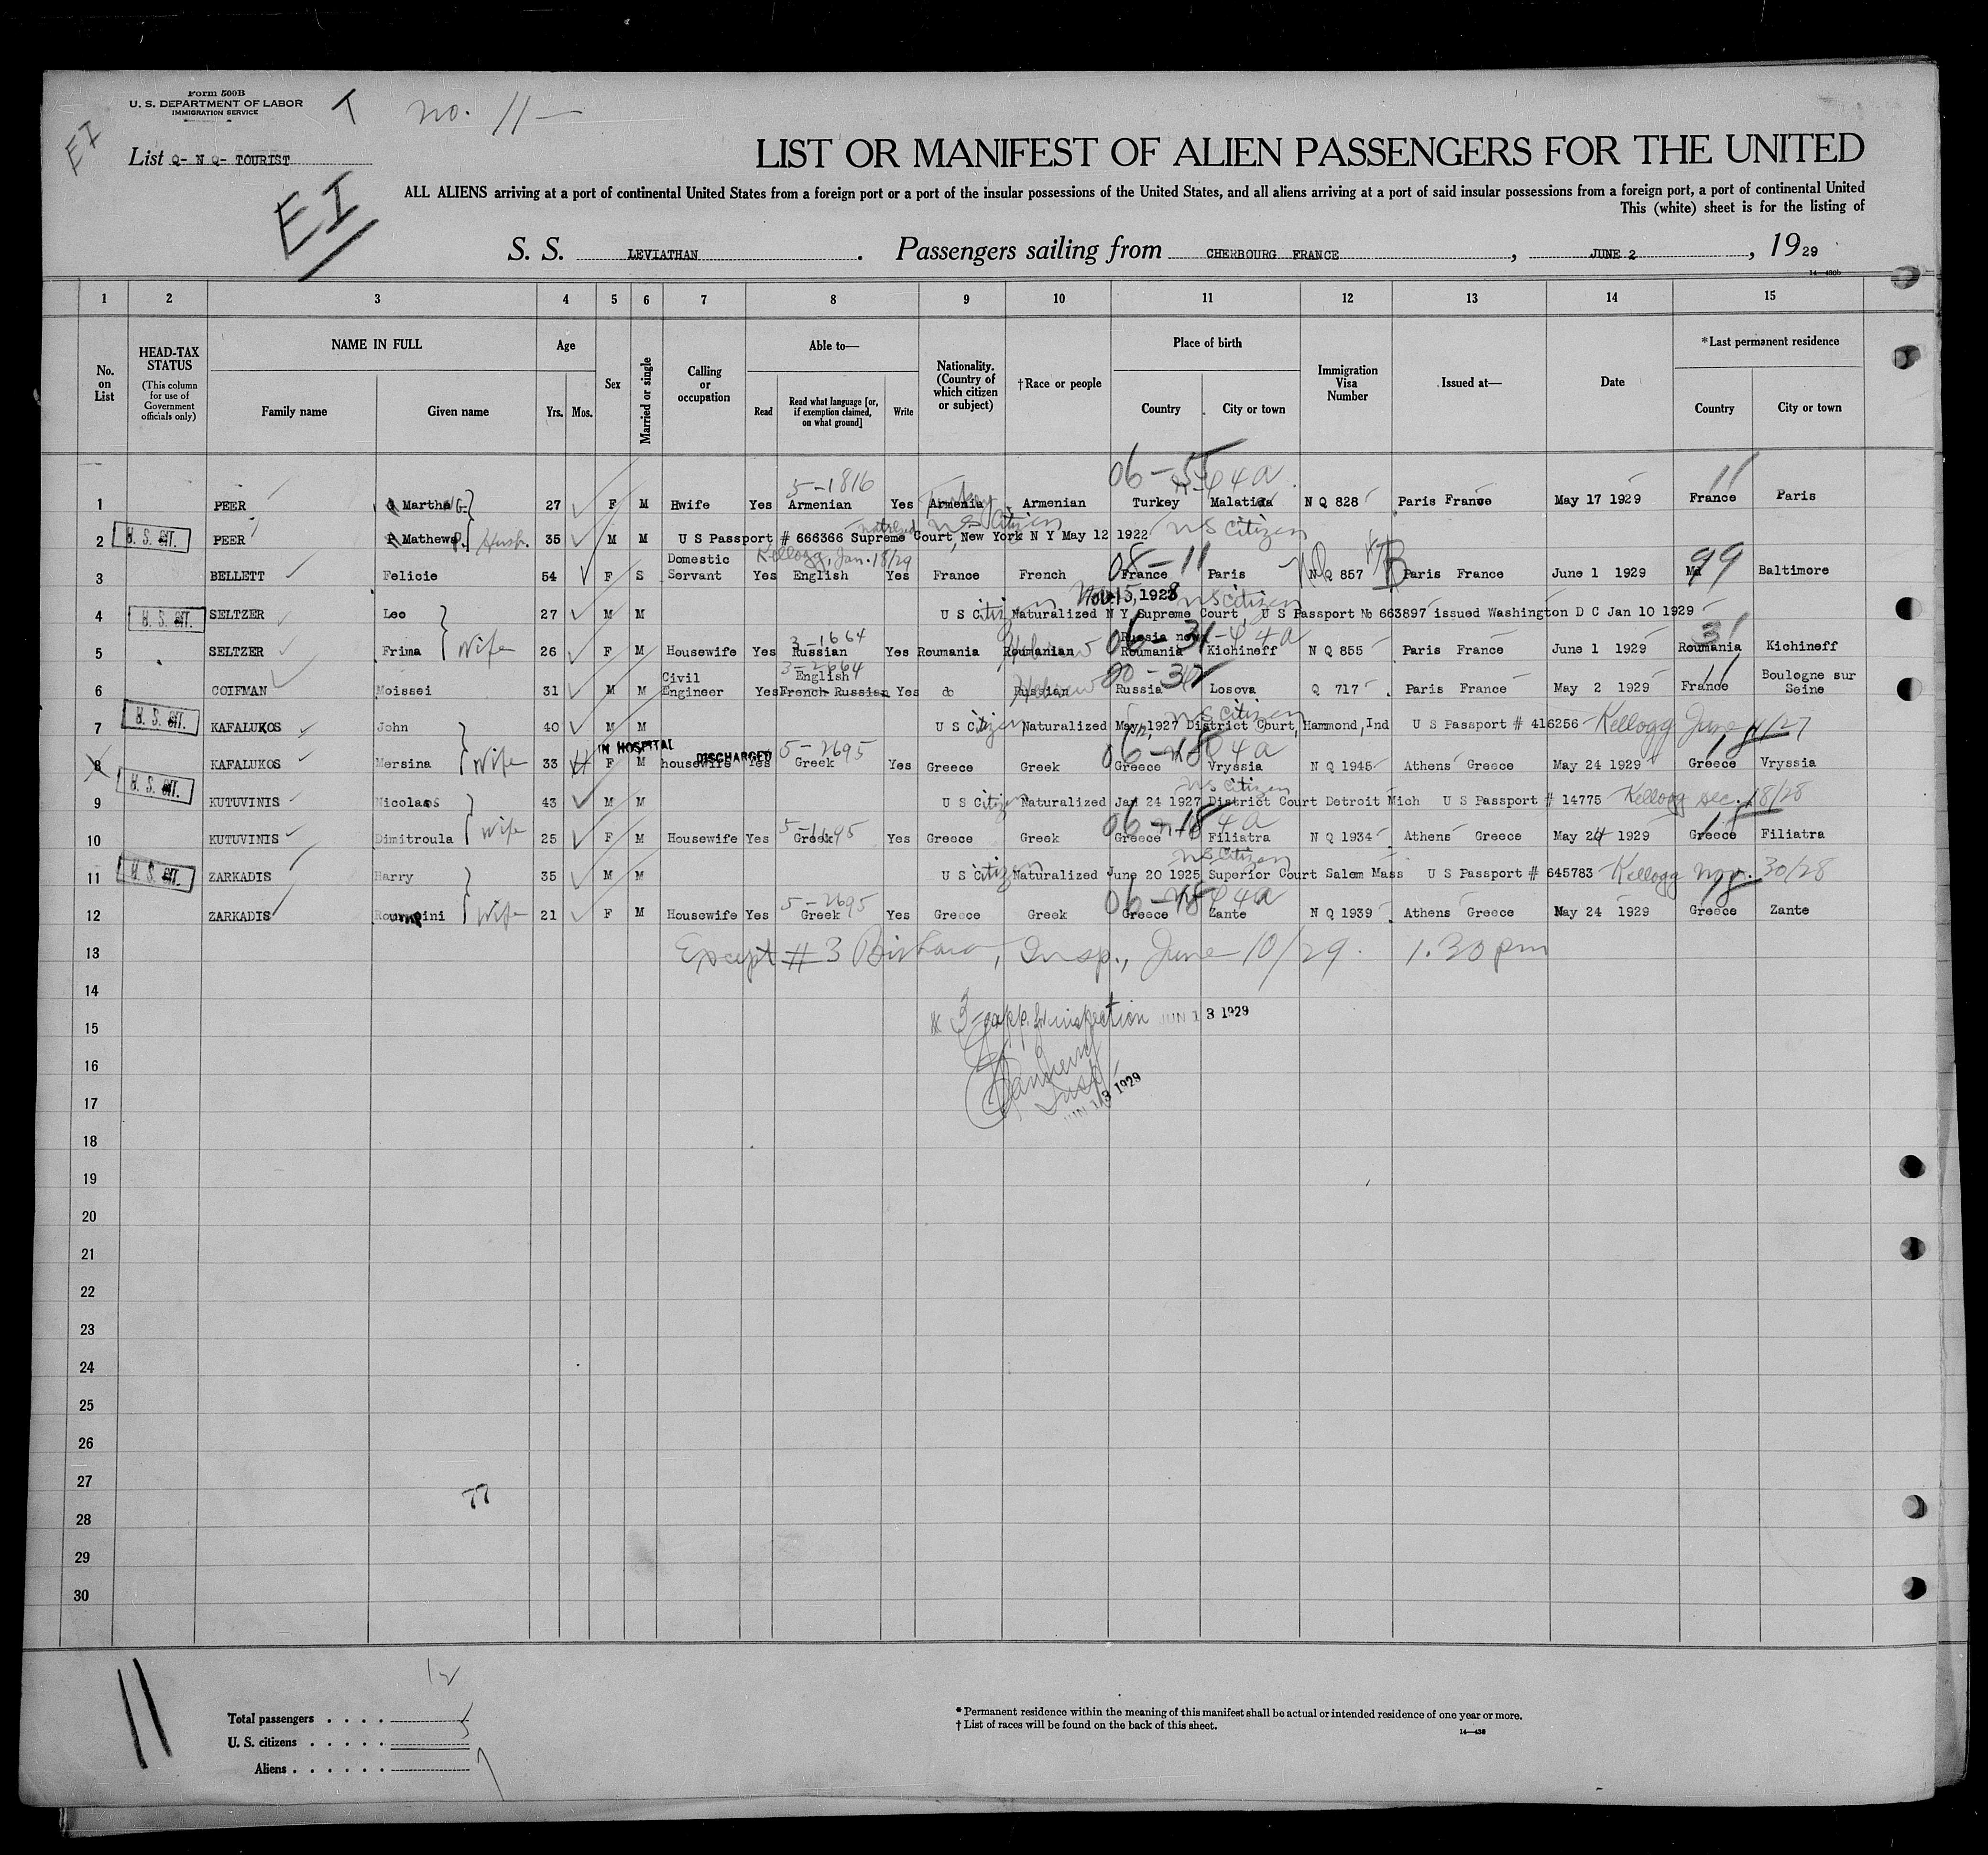 Form 500B
U. S. DEPARTMENT OF LABOR
IMMIGRATION SERVICE
T no. 11 —
EI
List Q- N Q- TOURIST
EI
LIST OR MANIFEST OF ALIEN PASSENGERS FOR THE UNITED
ALL ALIENS arriving at a port of continental United States from a foreign port or a port of the insular possessions of the United States, and all aliens arriving at a port of said insular possessions from a foreign port, a port of continental United
This (white) sheet is for the listing of
S. S. LEVIATHAN . Passengers sailing from CHERBOURG FRANCE , JUNE 2 , 1929
14—430b
1 2 3 4 5 6 7 8 9 10 11 12 13 14 15
No. on List
HEAD-TAX STATUS (This column for use of Government officials only)
NAME IN FULL Family name Given name
Age Yrs. Mos.
Sex
Married or single
Calling or occupation
Able to— Read Read what language [or, if exemption claimed, on what ground] Write
Nationality. (Country of which citizen or subject)
†Race or people
Place of birth Country City or town
Immigration Visa Number
Issued at—
Date
*Last permanent residence Country City or town
06-55 4a 11
5-1816
1 PEER Martha G. 27 F M Hwife Yes Armenian Yes Armenia Turkey Armenian Turkey Malatia N Q 828 Paris France May 17 1929 France Paris
natrlzed US Citizen US Citizen
2 U. S. CIT. PEER Mathews P. Husb. 35 M M U S Passport # 666366 Supreme Court, New York N Y May 12 1922
Kellogg, Jan. 18/29
08-11 99
3 BELLETT Felicie 54 F S Domestic Servant Yes English Yes France French France Paris N Q 857 Paris France June 1 1929 Md Baltimore
Nov 15, 1928 US Citizen
4 U. S. CIT. SELTZER Leo 27 M M U S Citizen Naturalized N Y Supreme Court, U S Passport No 663897 issued Washington D C Jan 10 1929
3-1664 06-31-44a 31
Russia now
5 SELTZER Frima Wife 26 F M Housewife Yes Russian Yes Roumania Roumanian Hebrew Roumania Kichineff N Q 855 Paris France June 1 1929 Roumania Kichineff
English
6 COIFMAN Moissei 31 M M Civil Engineer Yes French Russian Yes do Russian Hebrew Russia Losova Q 717 Paris France May 2 1929 France Boulogne sur Seine
US Citizen
7 U. S. CIT. KAFALUKOS John 40 M M U S Citizen Naturalized May, 1927 District Court, Hammond, Ind U S Passport # 416256 Kellogg June 4/27
IN HOSPITAL DISCHARGED 5-2695
8 KAFALUKOS Mersina Wife 33 F M housewife Yes Greek Yes Greece Greek Greece Vryssia N Q 1945 Athens Greece May 24 1929 Greece Vryssia
US Citizen
9 U. S. CIT. KUTUVINIS Nicolaos 43 M M U S Citizen Naturalized Jan 24 1927 District Court Detroit Mich U S Passport # 14775 Kellogg Dec. 18/28
10 KUTUVINIS Dimitroula Wife 25 F M Housewife Yes Greek Yes Greece Greek Greece Filiatra N Q 1934 Athens Greece May 24 1929 Greece Filiatra
US Citizen
11 U. S. CIT. ZARKADIS Harry 35 M M U S Citizen Naturalized June 20 1925 Superior Court Salem Mass U S Passport # 645783 Kellogg Nov. 30/28
5-2695
12 ZARKADIS Roumpini Wife 21 F M Housewife Yes Greek Yes Greece Greek Greece Zante N Q 1939 Athens Greece May 24 1929 Greece Zante
13 Except #3 Insp., June 10/29. 1.30 pm
14
15 # 3 app. for inspection JUN 13 1929
16
17 Insp. JUN 13 1929
18
19
20
21
22
23
24
25
26
27
77
28
29
30
11
12
Total passengers . . . .
U. S. citizens . . . . . 5
Aliens . . . . . . 7
* Permanent residence within the meaning of this manifest shall be actual or intended residence of one year or more.
† List of races will be found on the back of this sheet.
14—430